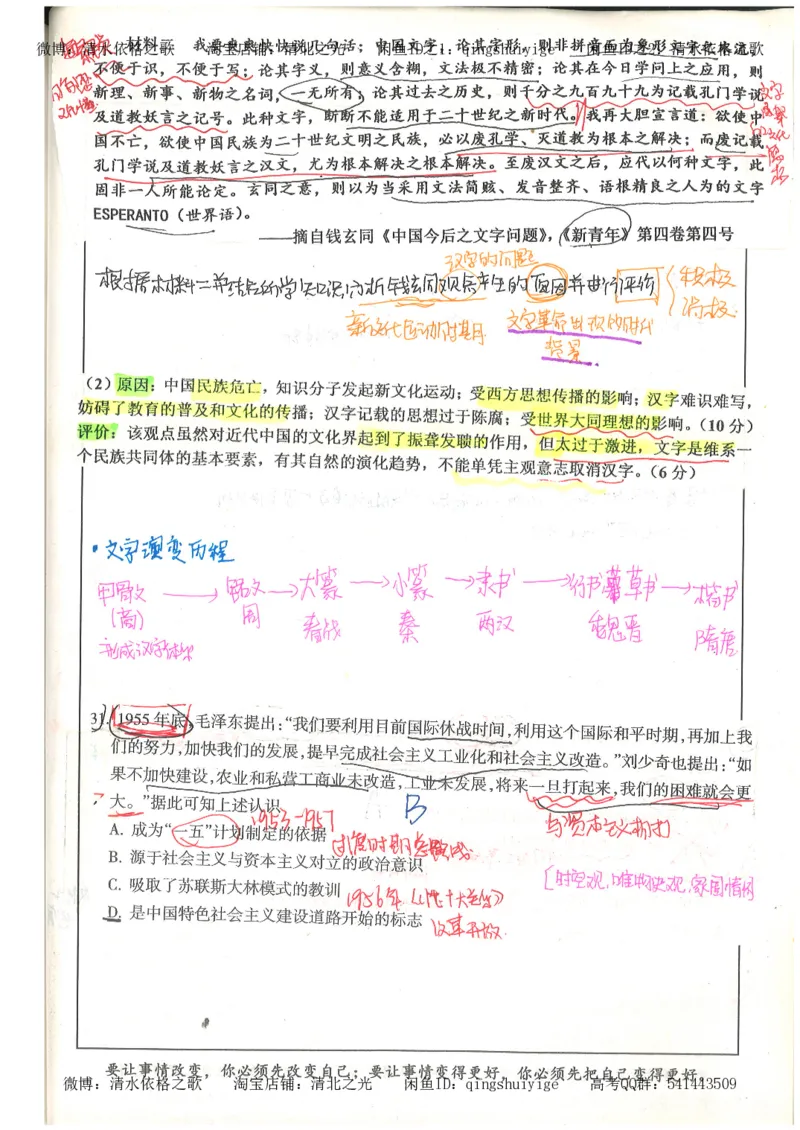 微博：清水依格之歌 淘宝店铺：清北之光 闲鱼ID1：qingshuiyige 闲鱼ID2：清水依格流歌
材料二 我要爽爽快快说几句话；中国文字，论其字形，则非拼音而为象形文字之末流，
不便于识，不便于写；论其字义，则意义含糊，文法极不精密；论其在今日学问上之应用，则
新理、新事、新物之名词，一无所有；论其过去之历史，则千分之九百九十九为记载孔门学说
及道教妖言之记号。此种文字，断断不能适用于二十世纪之新时代。我再大胆宣言道：欲使中
国不亡，欲使中国民族为二十世纪文明之民族，必以废孔学、灭道教为根本之解决；而废记载
孔门学说及道教妖言之汉文，尤为根本解决之根本解决。至废汉文之后，应代以何种文字，此
固非一人所能论定。玄同之意，则以为当采用文法简赅、发音整齐、语根精良之人为的文字
ESPERANTO（世界语）。
——摘自钱玄同《中国今后之文字问题》，《新青年》第四卷第四号
汉字的问题
根据材料二并结合所学知识，分析钱玄同观点产生的原因并进行评价
积极
消极
新文化运动时期
文字革命出现的时代
背景
（2）原因：中国民族危亡，知识分子发起新文化运动；受西方思想传播的影响；汉字难识难写，
妨碍了教育的普及和文化的传播；汉字记载的思想过于陈腐；受世界大同理想的影响。（10 分）
评价：该观点虽然对近代中国的文化界起到了振聋发聩的作用，但太过于激进，文字是维系一
个民族共同体的基本要素，有其自然的演化趋势，不能单凭主观意志取消汉字。（6 分）
·文字演变历程
甲骨文 → 铭文 → 大篆 → 小篆 → 隶书 → 行书 草书 → 楷书
（商） 周 春战 秦 两汉 魏晋 隋唐
形成汉字体系
31. 1955 年底，毛泽东提出：“我们要利用目前国际休战时间，利用这个国际和平时期，再加上我
们的努力，加快我们的发展，提早完成社会主义工业化和社会主义改造。”刘少奇也提出：“如
果不加快建设，农业和私营工商业未改造，工业未发展，将来一旦打起来，我们的困难就会更
大。”据此可知上述认识
B
1953-1957
与资本主义打
A. 成为“一五”计划制定的依据
过渡时期总路线
B. 源于社会主义与资本主义对立的政治意识
[时空观，唯物史观，家国情怀
C. 吸取了苏联斯大林模式的教训
1956年《论十大关系》
D. 是中国特色社会主义建设道路开始的标志
改革开放.
要让事情改变，你必须先改变自己；要让事情变得更好，你必须先把自己变得更好。
微博：清水依格之歌 淘宝店铺：清北之光 闲鱼ID：qingshuiyige 高考QQ群：541443509